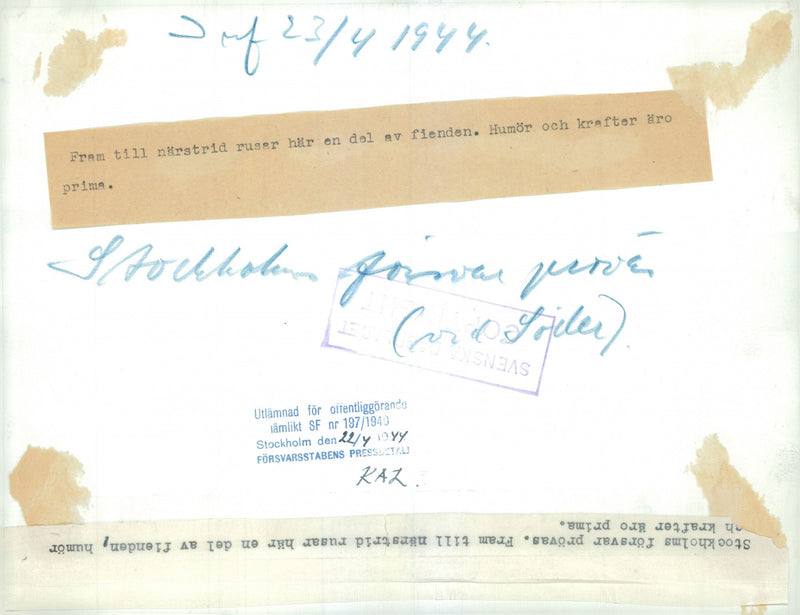 Inf 23/4 1944.
Fram till närstrid rusar här en del av fienden. Humör och krafter äro
prima.
Stockholms försvar prövas
(vid Söder).
SVENSKA DAGBLADET
Utlämnad för offentliggörande
jämlikt SF nr 197/1940
Stockholm den 22/4 1944
FÖRSVARSSTABENS PRESSDETALJ
KAL.
Stockholms försvar prövas. Fram till närstrid rusar här en del av fienden, humör
och krafter äro prima.